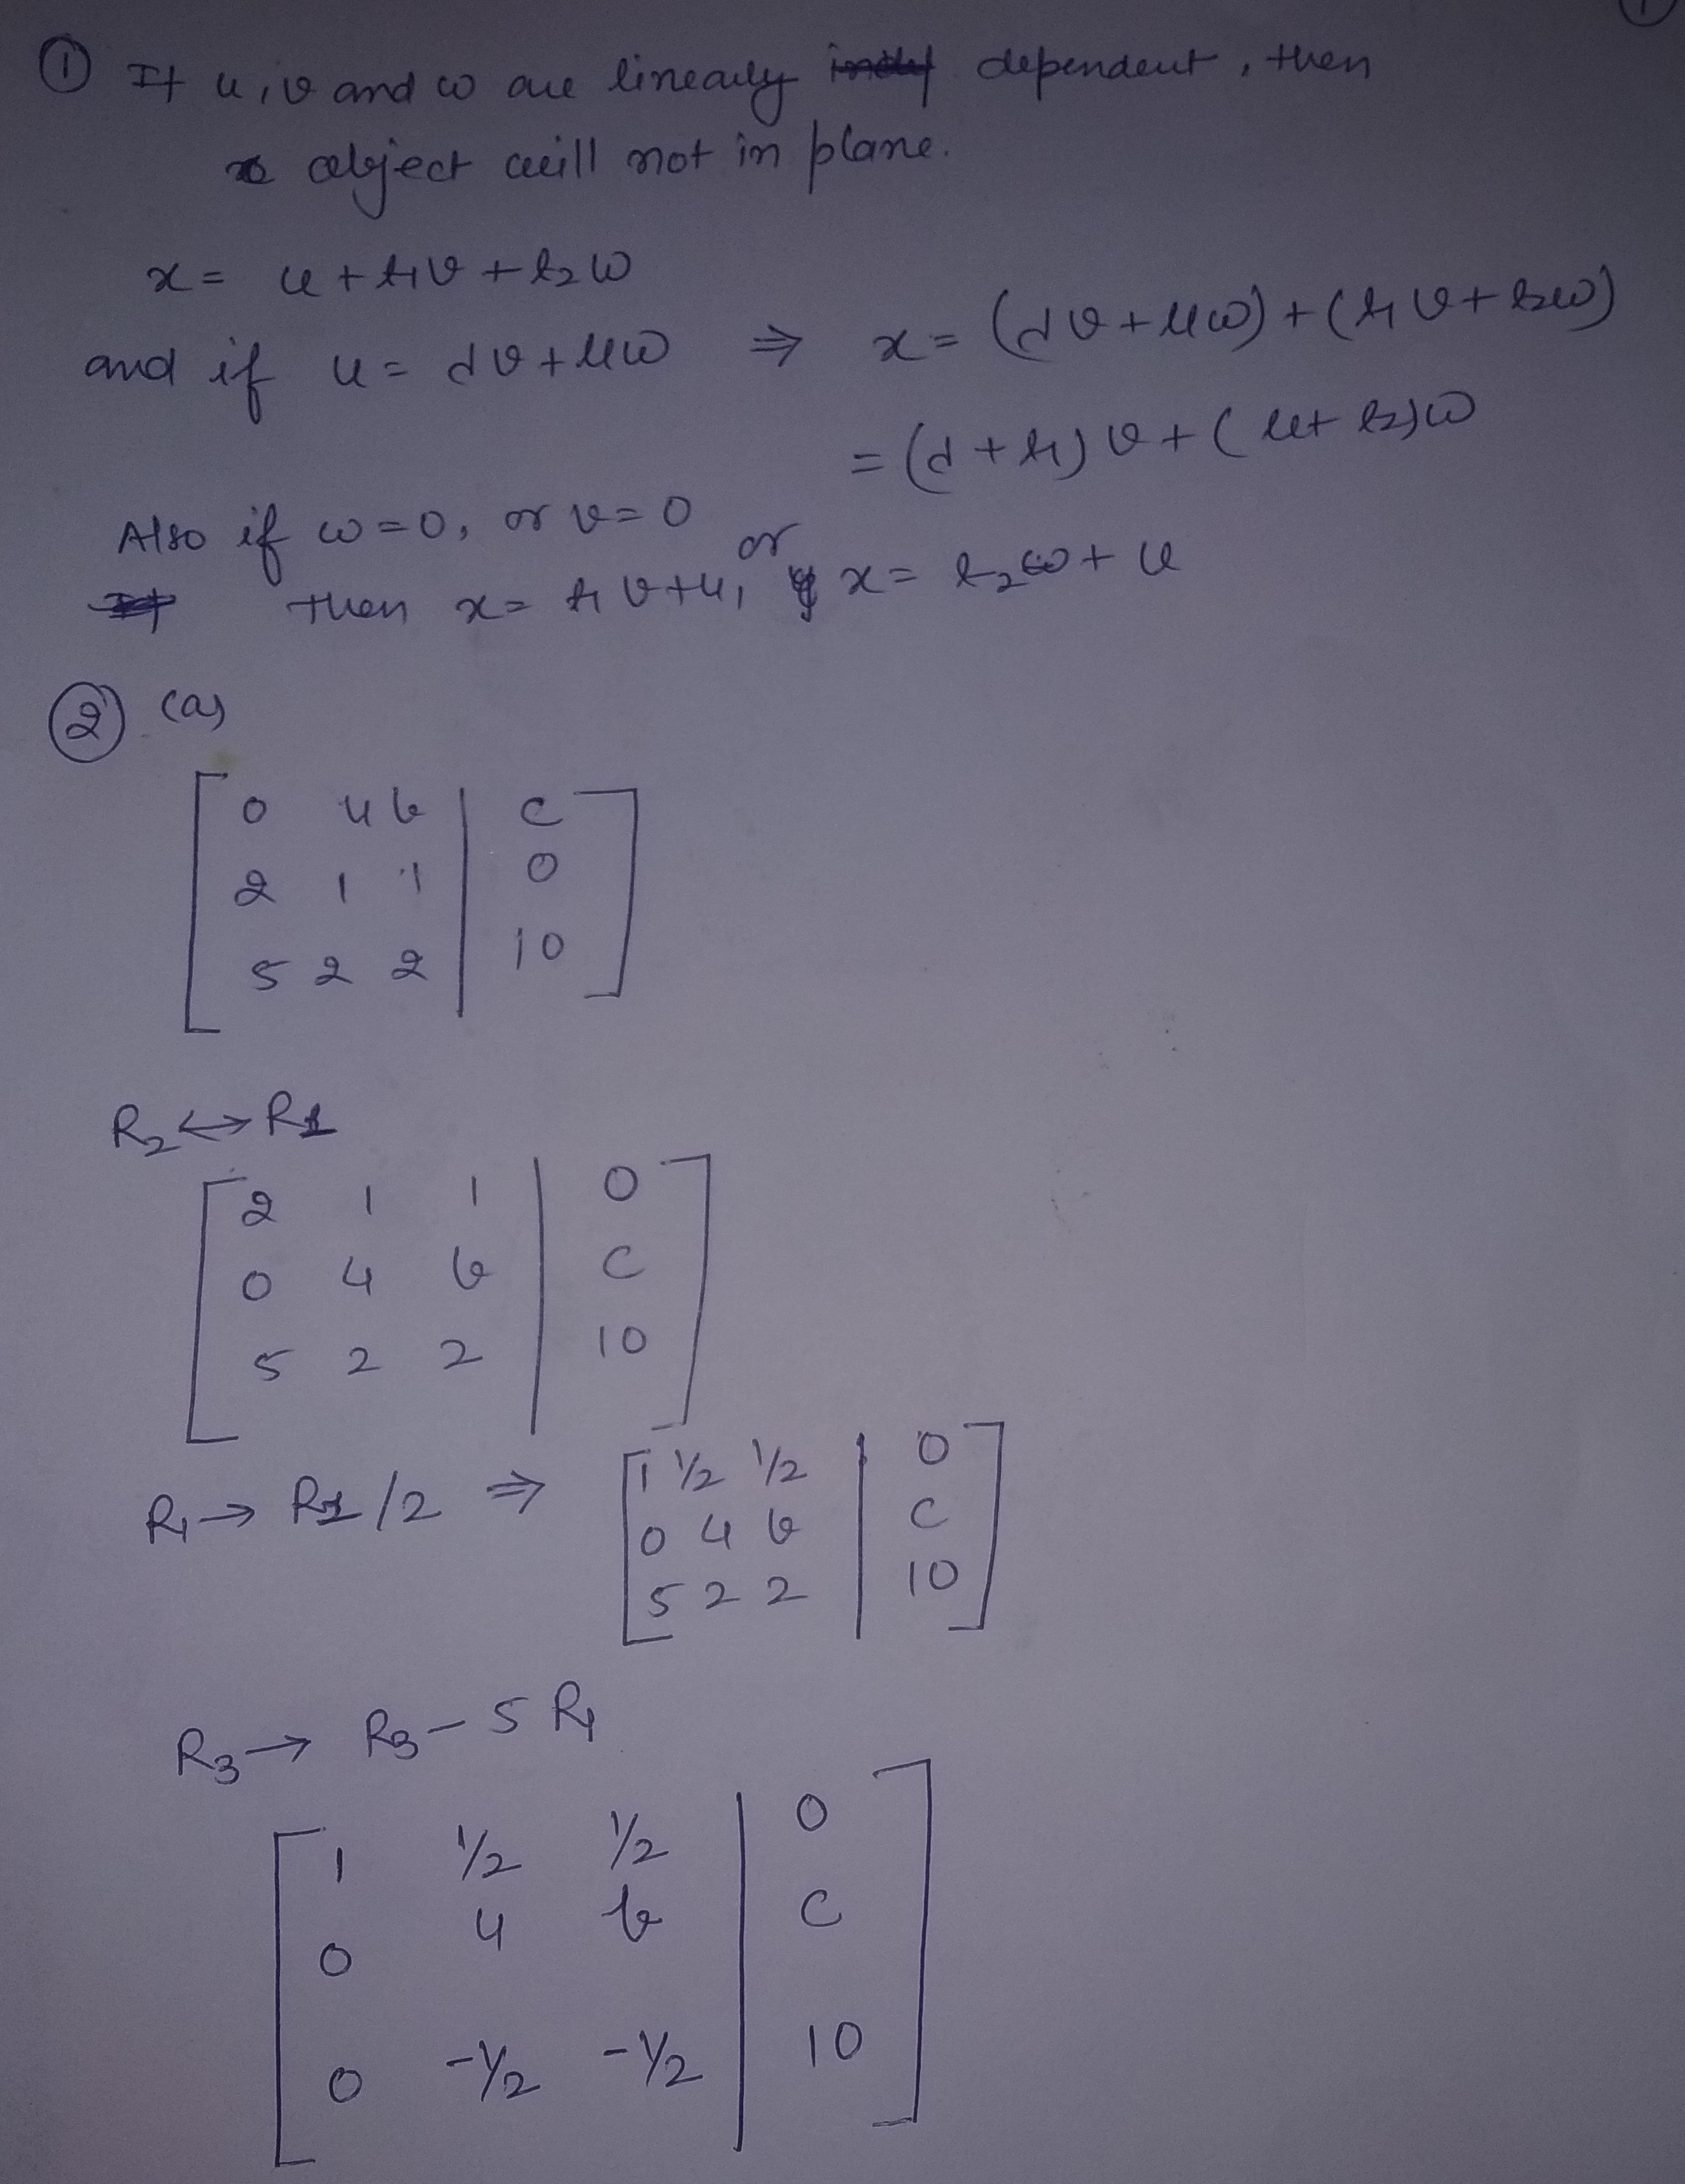 ① If u, v and w are linearly dependent, then
object will not in plane.
x = u + t₁v + t₂w
and if u = dv + μw ⇒ x = (dv + μw) + (t₁v + t₂w)
= (d + t₁)v + (μ + t₂)w
Also if w = 0, or v = 0
then x = t₁v + u, or x = t₂w + u
② (a)
[ 0 4 b | c ]
[ 2 1 1 | 0 ]
[ 5 2 2 | 10 ]
R₂ ↔ R₁
[ 2 1 1 | 0 ]
[ 0 4 b | c ]
[ 5 2 2 | 10 ]
R₁ → R₁/2 ⇒ [ 1 1/2 1/2 | 0 ]
[ 0 4 b | c ]
[ 5 2 2 | 10 ]
R₃ → R₃ - 5R₁
[ 1 1/2 1/2 | 0 ]
[ 0 4 b | c ]
[ 0 -1/2 -1/2 | 10 ]